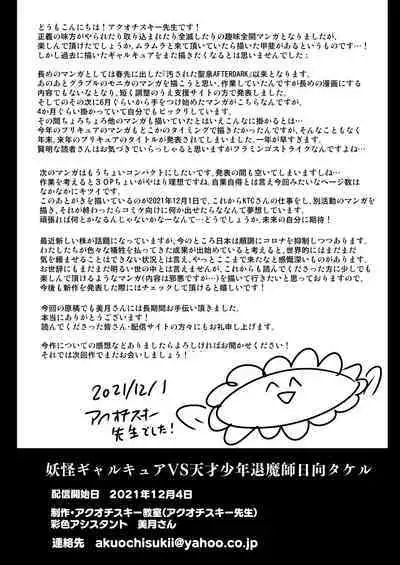 どうもこんにちは!アクオチスキー先生です!
正義の味方がやられたり取り込まれたり全滅したりの趣味全開マンガとなりましたが、
楽しんで頂けたでしょうか、ムラムラと来て頂いていたら描いた甲斐があるというものです…!
しかし過去に描いたギャルキュアをまた描きたくなるとは思いませんでした;
長めのマンガとしては春先に出した『汚された聖泉AFTERDARK』以来となります。
あのあとグラブルのモニカのマンガを描こうと思い、作業していたんですが長めの漫画にする
内容でもないなとなり、短く調整のうえ支援サイトの方で発表しました。
そしてそのの次に6月ぐらいから手をつけ始めたマンガがこちらなんですが、
4か月ぐらい掛かっていて自分でもビックリしています。
その間ちょろちょろ他のマンガも描いていたとはいえこんなに掛かるとは…!
今年のプリキュアのマンガもどこかのタイミングで描きたかったんですが、そんなことなく
年末、来年のプリキュアのタイトルが発表されてしまいました。一年が早すぎます。
賢明な読者さんはお気づきでいらっしゃると思いますがフラミンゴストライクなんですよね…
次のマンガはもうちょいコンパクトにしたいです。発表の間も空いてしまいますしね…
作業を考えると30Pちょいがやはり理想ですね。自業自得とは言え今回みたいなページ数は
なかなかにキツイです。
このあとがきを描いているのが2021年12月1日で、これからKTCさんの仕事をし、別活動のマンガを
描き、それが終わったらコミケ向けに何か出せたらななんて夢想しています。
頑張れば何とかなるんじゃないかなーなんて…どうでしょうか、未来の自分に期待!
最近新しい株が話題になっていますが、今のところ日本は順調にコロナを抑制しつつあります。
わたしたちが色々な犠牲を払ってきた成果が出始めていると考えると、世界的にはまだまだ
気を緩ませることはできない状況とは言え、やっとここまで来たなと感慨深いものがあります。
お世辞にもまだまだ明るい世の中とは言えませんが、これからも読んでくださった方に少しでも
楽しんで頂けるようなマンガ(内容は邪悪ですが…)を描いて行きたいと思っておりますので、
今後も新作を発表した際にはチェックして頂けると嬉しいです!
今回の原稿でも美月さんには長期間お手伝い頂きました。
本当にありがとうございます!
読んでくださった皆さん・配信サイトの方々にもお礼申し上げます。
今作についての感想などありましたらよろしければお聞かせください!
それでは次回作でまたお会いしましょう!
2021/12/1
アクオチスキー
先生でした!
妖怪ギャルキュアVS天才少年退魔師日向タケル
配信開始日 2021年12月4日
制作・アクオチスキー教室(アクオチスキー先生)
彩色アシスタント 美月さん
連絡先 akuochisukii@yahoo.co.jp